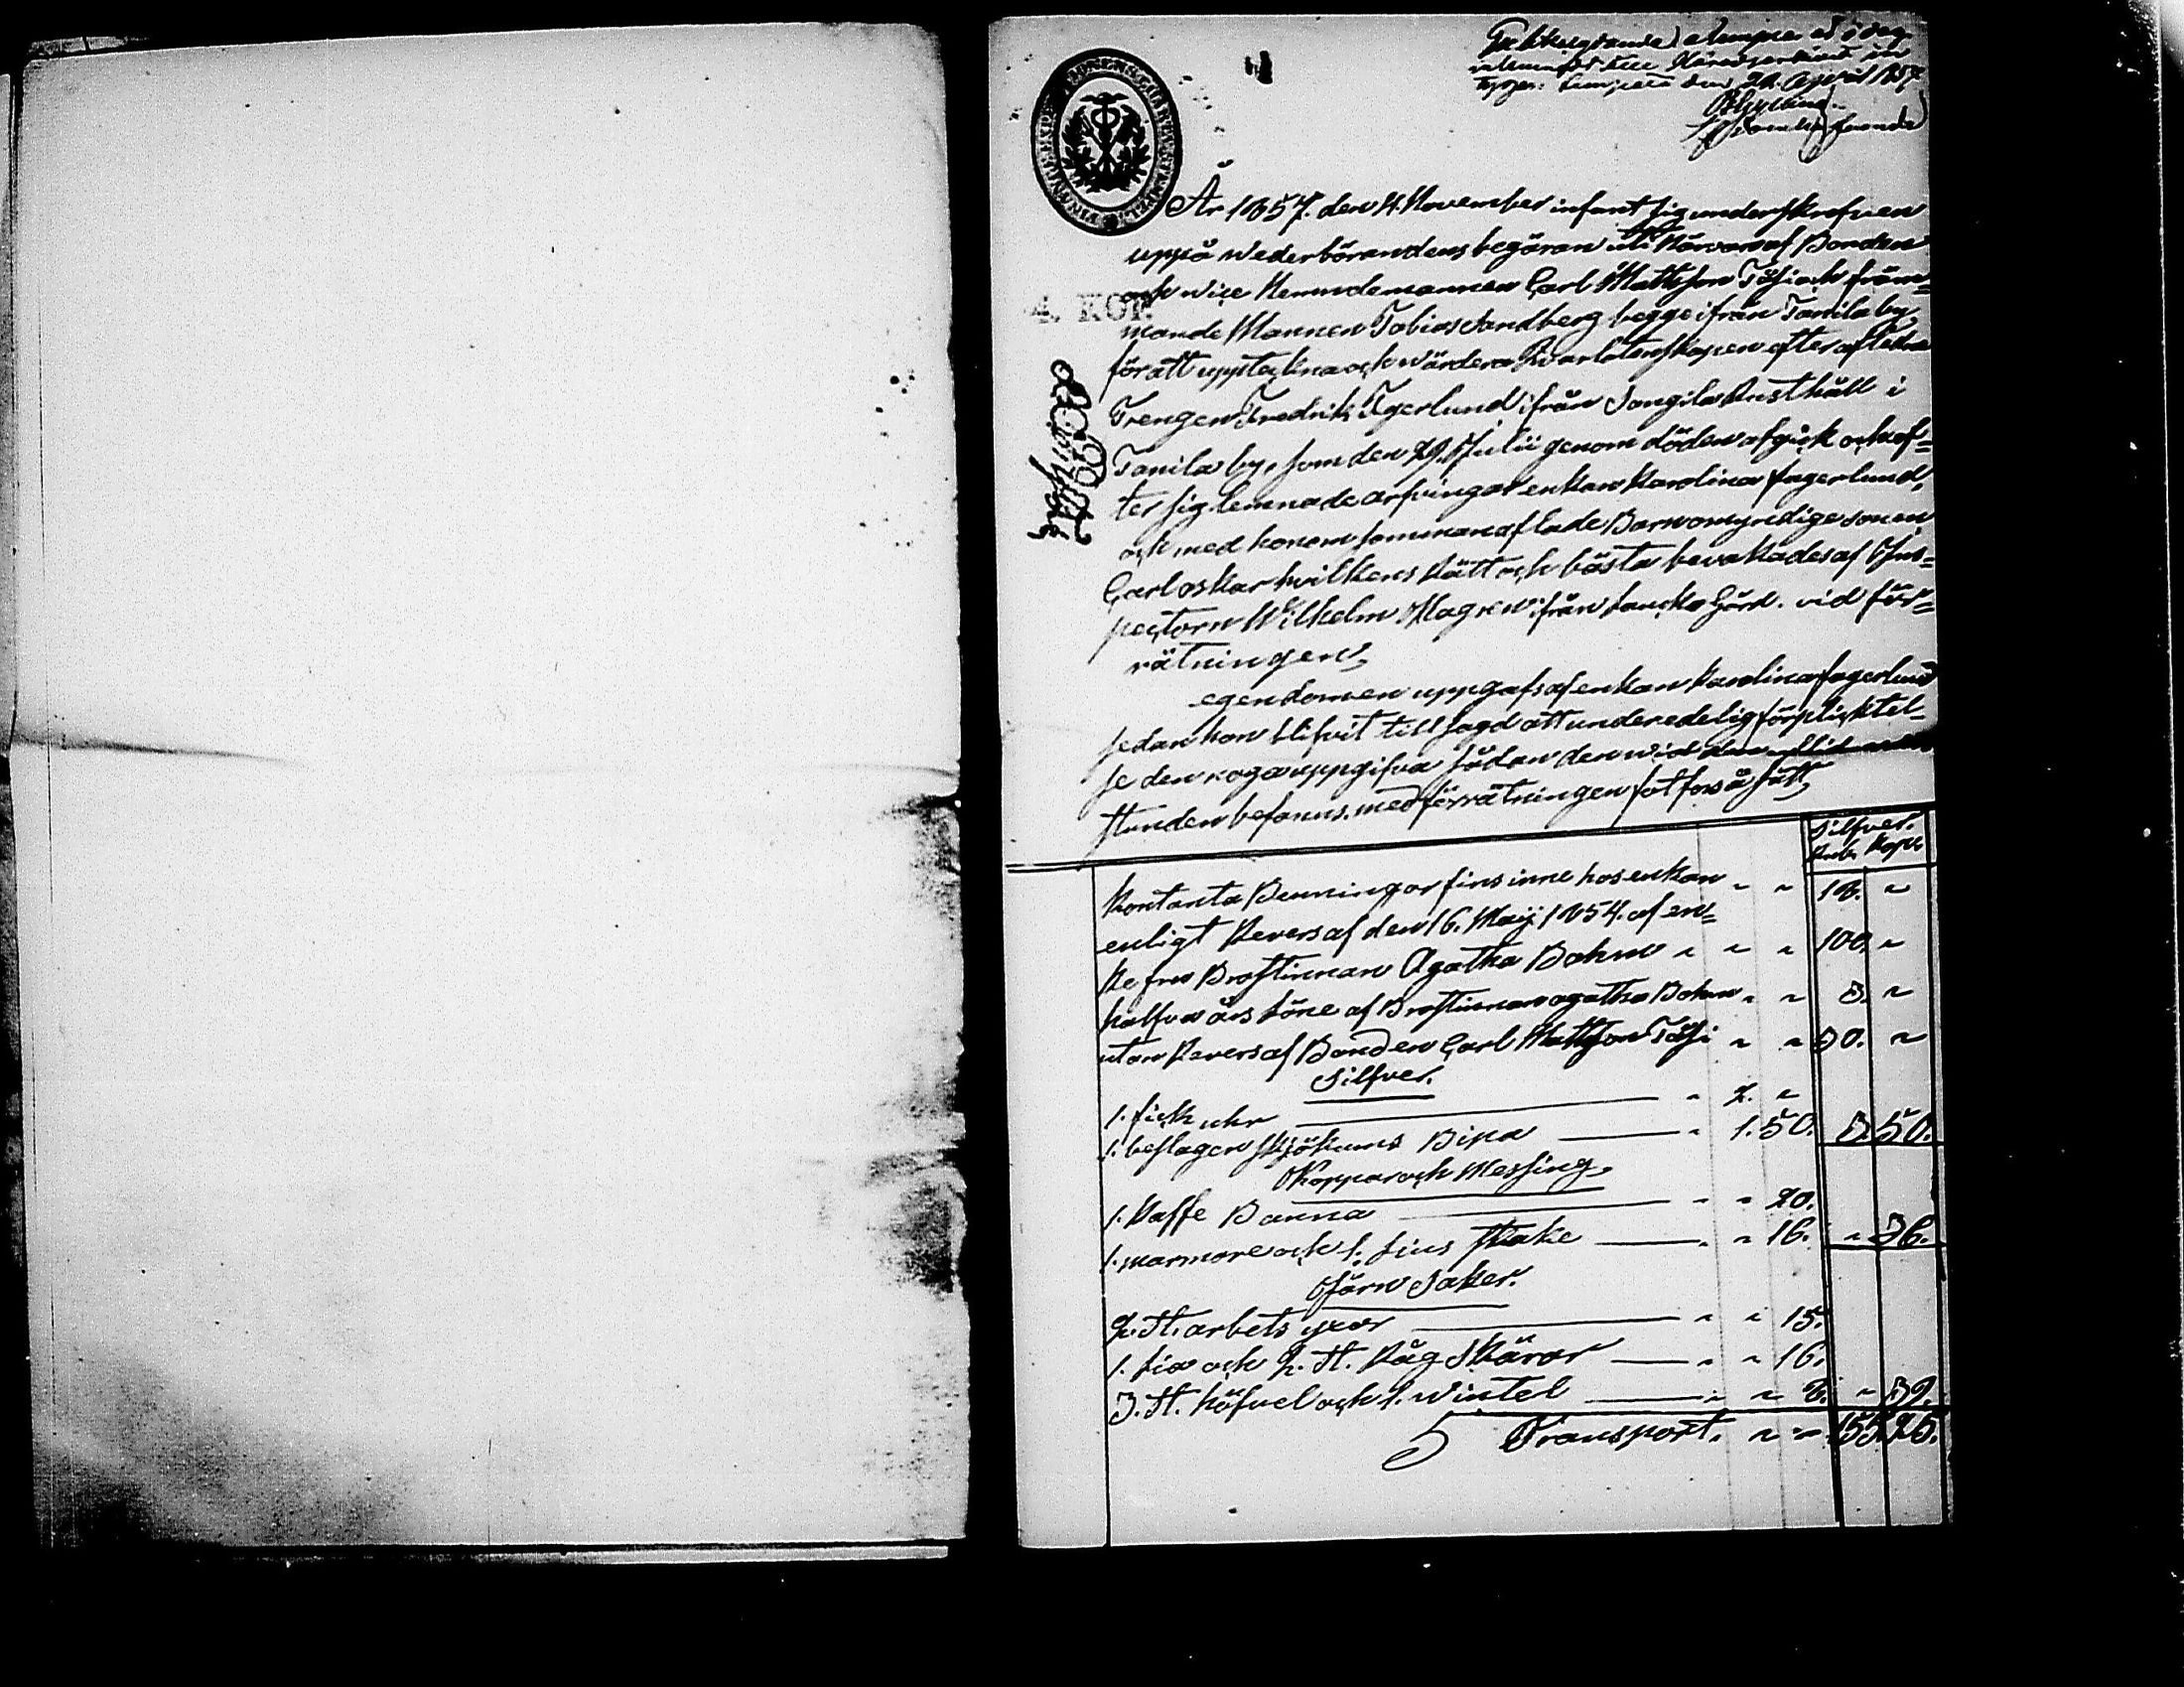 den 21. April 1857
År 1857. den 4. November infant sig underskrefven
uppå wederbörandens begäran uti Närvaro af Bonden
och wice Nemndemannen Carl Mattsson Töfsi och främ=
mande Mannen Tobias Sandberg begge ifrån Tanila by,
för att uppteckna och wärdera Qvarlåtenskapen efter aflidne
Drengen Fredrik Fagerlund ifrån Sangila Rusthåll i
Tanila by, som den 29. Julii genom döden afgick och ef=
ter sig lemnade arfvingar enkan Karolina Fagerlund,
och med honom samman aflade Barn omyndige sonen
Carl oskar hvilkens Rätt och bästa bevakades af Ins=
pectorn Wilhelm Hagren ifrån Laucko Gård. vid för=
rätningen,
egendomen uppgafs af enkan Karolina Fagerlund
sedan hon blifvit till sagd att under edelig förplicktel=
se den noga uppgifva sådan den wid
stunden befanns. med förrätningen fot fors å sätt,
Silfver.
Rub. Kop.
Kontanta Penningar fins inne hos enkan " " 18. "
enligt Revers af den 16. Maij 1854. af en=
ke fru Prostinnan Agatha Bohm " " " 100. "
halfva års Löne af Prostinnan agatha Bohm " " 3. "
utan Revers af Bonden Carl Mattsson Töfsi " " 30. "
Silfver.
1. fick uhr " 2. "
1. beslagen skjökums Pipa " 1. 50. 3. 50.
Koppar och Messing.
1. Kaffe Panna " " 20.
1. marmore och 1. Lius stake " " 16. " 36.
Järn Saker.
2. st. arbets yxor " " 15.
1. Lia och 2. st. Råg Skäror " " 16.
3. st. höfvel och 1. Wintel " " 8. " 39.
Transport. " " 155. 25.
4. KOP.